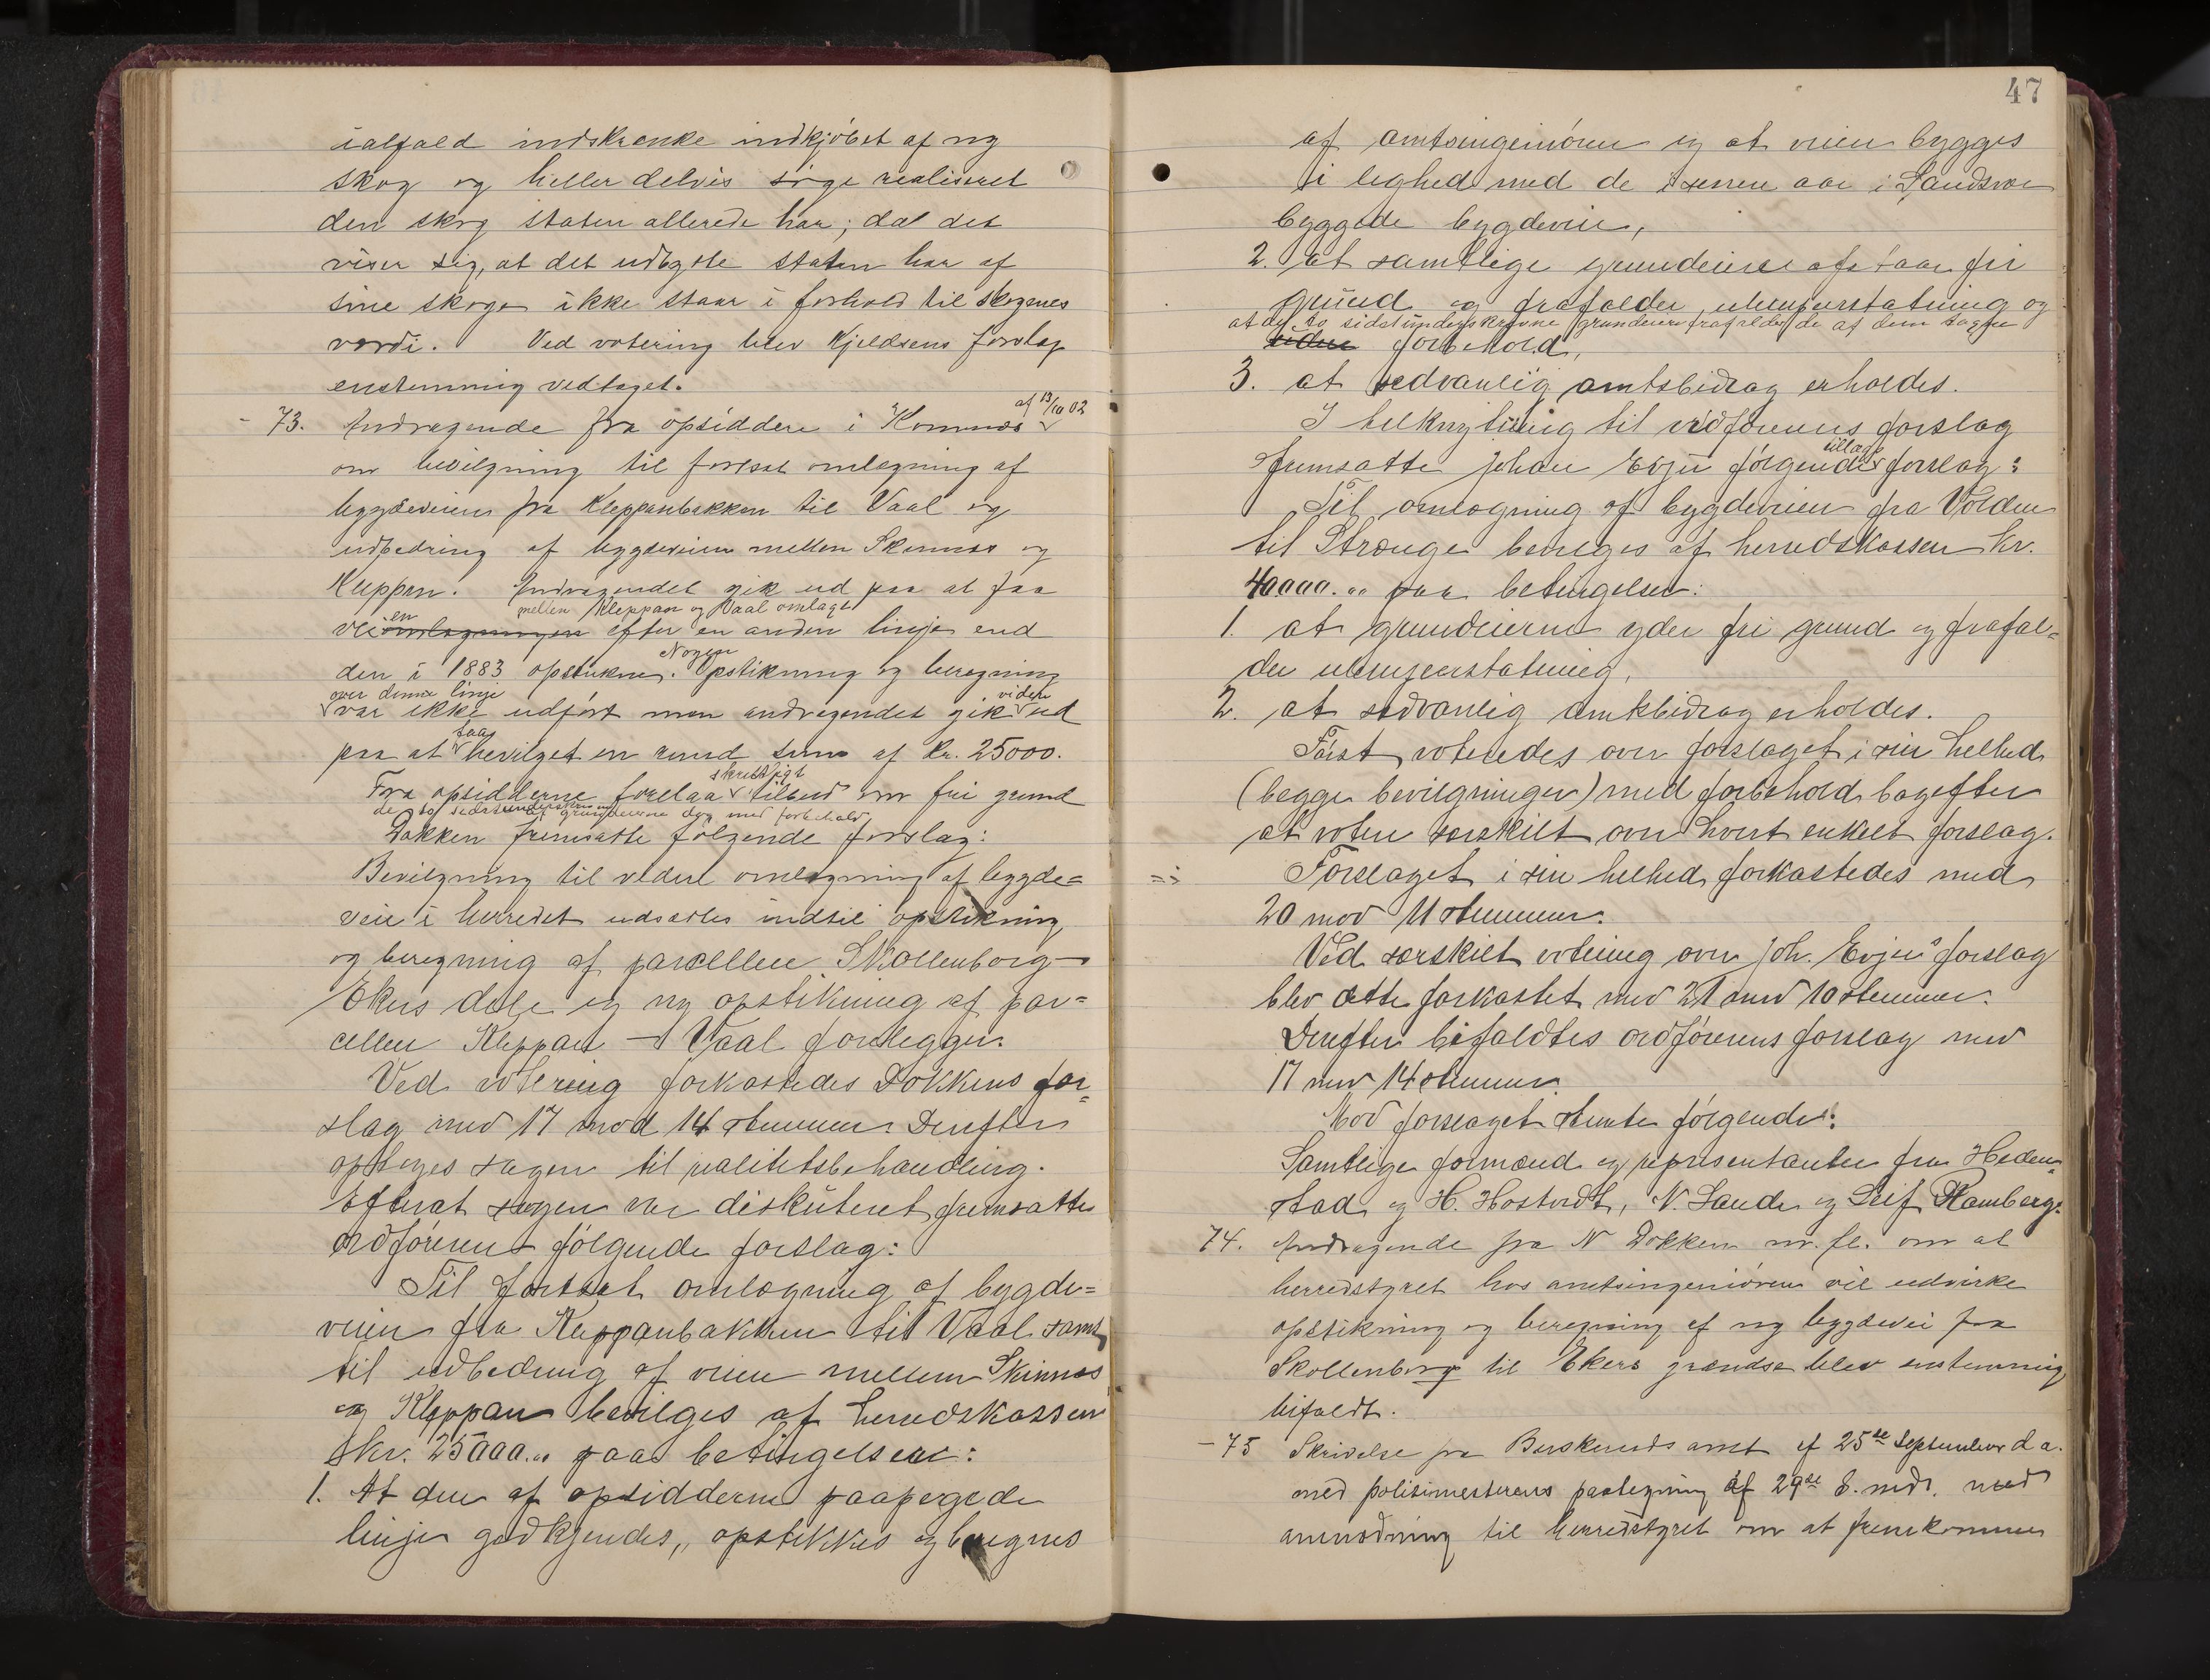 ialfald indskrænke indkjöbet af ny
skog og heller delvis söge realiseret
den skog staten allerede har; da det
viser sig, at det udbytte staten har af
sine skoge ikke staar i forhold til skogenes
værdi. Ved votering blev Kjeldsens forslag
enstemmig vedtaget.
- 73. Andragende fra opsiddere i Komnæs af 13/10 02
om bevilgning til fortsat omlægning af
bygdeveien fra Kleppanbakken til Vaal og
udbedring af bygdeveien mellem Skinnæs og
Kleppan. Andragendet gik ud paa at faa
mellem Kleppan og Vaal omlagt
veien omlægningen efter en anden linje end
den i 1883 opstukne. Nogen Opstikning og beregning
over denne linje
var ikke udfört men andragendet gik videre ud
paa at faa bevilget en rund sum af kr. 25000.
Fra opsidderne forelaa skriftligt tilbud om fri grund
de to sidstunderskrevne grundeiere dog med forbehold
Dokken fremsatte fölgende forslag:
Bevilgning til videre omlægning af bygde=
veie i herredet udsættes indtil opstikning
og beregning af parcellen Skollenborg -
Ekers dele og ny opstikning af par=
cellen Kleppan - Vaal foreligger.
Ved votering forkastedes Dokkens for=
slag med 17 mod 14 stemmer. Derefter
optoges sagen til realitetsbehandling.
Efterat sagen var diskuteret fremsatte
ordföreren fölgende forslag:
Til fortsat omlægning af bygde=
veien fra Kleppanbakken til Vaal samt
til udbedring af veien mellem Skinnæs
og Kleppan bevilges af herredskassen
kr. 25000.,, paa betingelse av:
1. At den af opsidderne paapegede
linje godkjendes, opstikkes og beregnes
47
af amtsingeniören og at veien bygges
i lighed med de i senere aar i Sandsvær
byggede bygdeveie,
2. at samtlige grundeiere afstaar fri
grund og frafalder ulempeerstatning og
at de to sidstunderskrevne grundeiere frafalder de af dem tagne
forbehold,
3. at sedvanlig amtsbidrag erholdes.
I tilknytning til ordförerens forslag
fremsatte Johan Evju fölgende tillægs forslag:
Til omlægning af bygdeveien fra Volden
til Strange bevilges af herredskassen kr.
40000.,, paa betingelse:
1. at grundeierne yder fri grund og frafal=
der ulempeerstatning,
2. at sedvanlig amtsbidrag erholdes.
Först voteredes over forslaget i sin helhed
(begge bevilgninger) med forbehold bagefter
at votere særskilt over hvert enkelt forslag.
Forslaget i sin helhed forkastedes med
20 mod 11 stemmer.
Ved særskilt votering over Joh. Evjus forslag
blev dette forkastet med 21 mod 10 stemmer.
Derefter bifaldtes ordförerens forslag med
17 mod 14 stemmer.
Mod forslaget stemte fölgende:
Samtlige formænd og repræsentanter fra Heden=
stad og H. Hostvedt, N. Sande og Leif Ramberg.
74. Andragende fra N Dokken m. fl. om at
herredstyret hos amtsingeniören vil udvirke
opstikning og beregning af ny bygdevei fra
Skollenborg til Ekers grændse blev enstemmig
bifaldt.
- 75 Skrivelse fra Buskeruds amt af 25de September d a.
med politimesterens paategning af 29de s. md. med
anmodning til herredstyret om at fremkomme